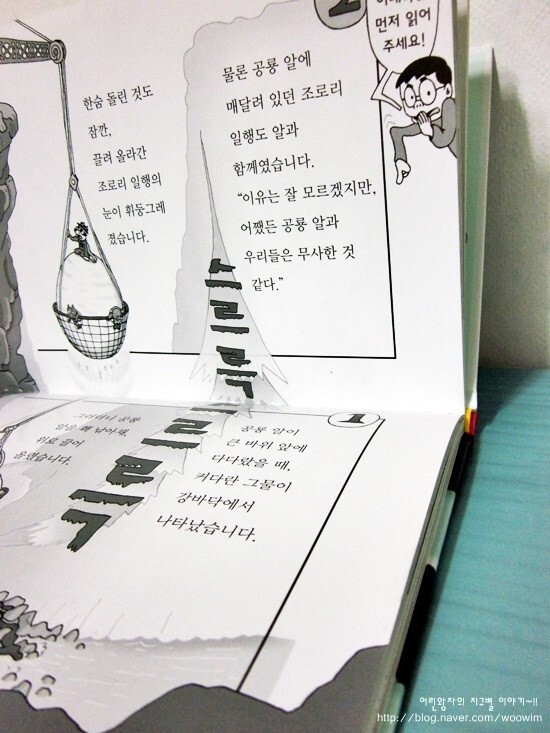 2
먼저 읽어
주세요!
물론 공룡 알에
매달려 있던 조로리
일행도 알과
함께였습니다.
“이유는 잘 모르겠지만,
어쨌든 공룡 알과
우리들은 무사한 것
같다.”
한숨 돌린 것도
잠깐,
끌려 올라간
조로리 일행의
눈이 휘둥그레
졌습니다.
스르륵
1
공룡 알이
큰 바위 앞에
다다랐을 때,
커다란 그물이
강바닥에서
나타났습니다.
그러더니 공룡
알을 확 낚아채,
위로 끌어
올렸습니다.
스르륵
어린왕자의 지구별 이야기~!!
http://blog.naver.com/woowim